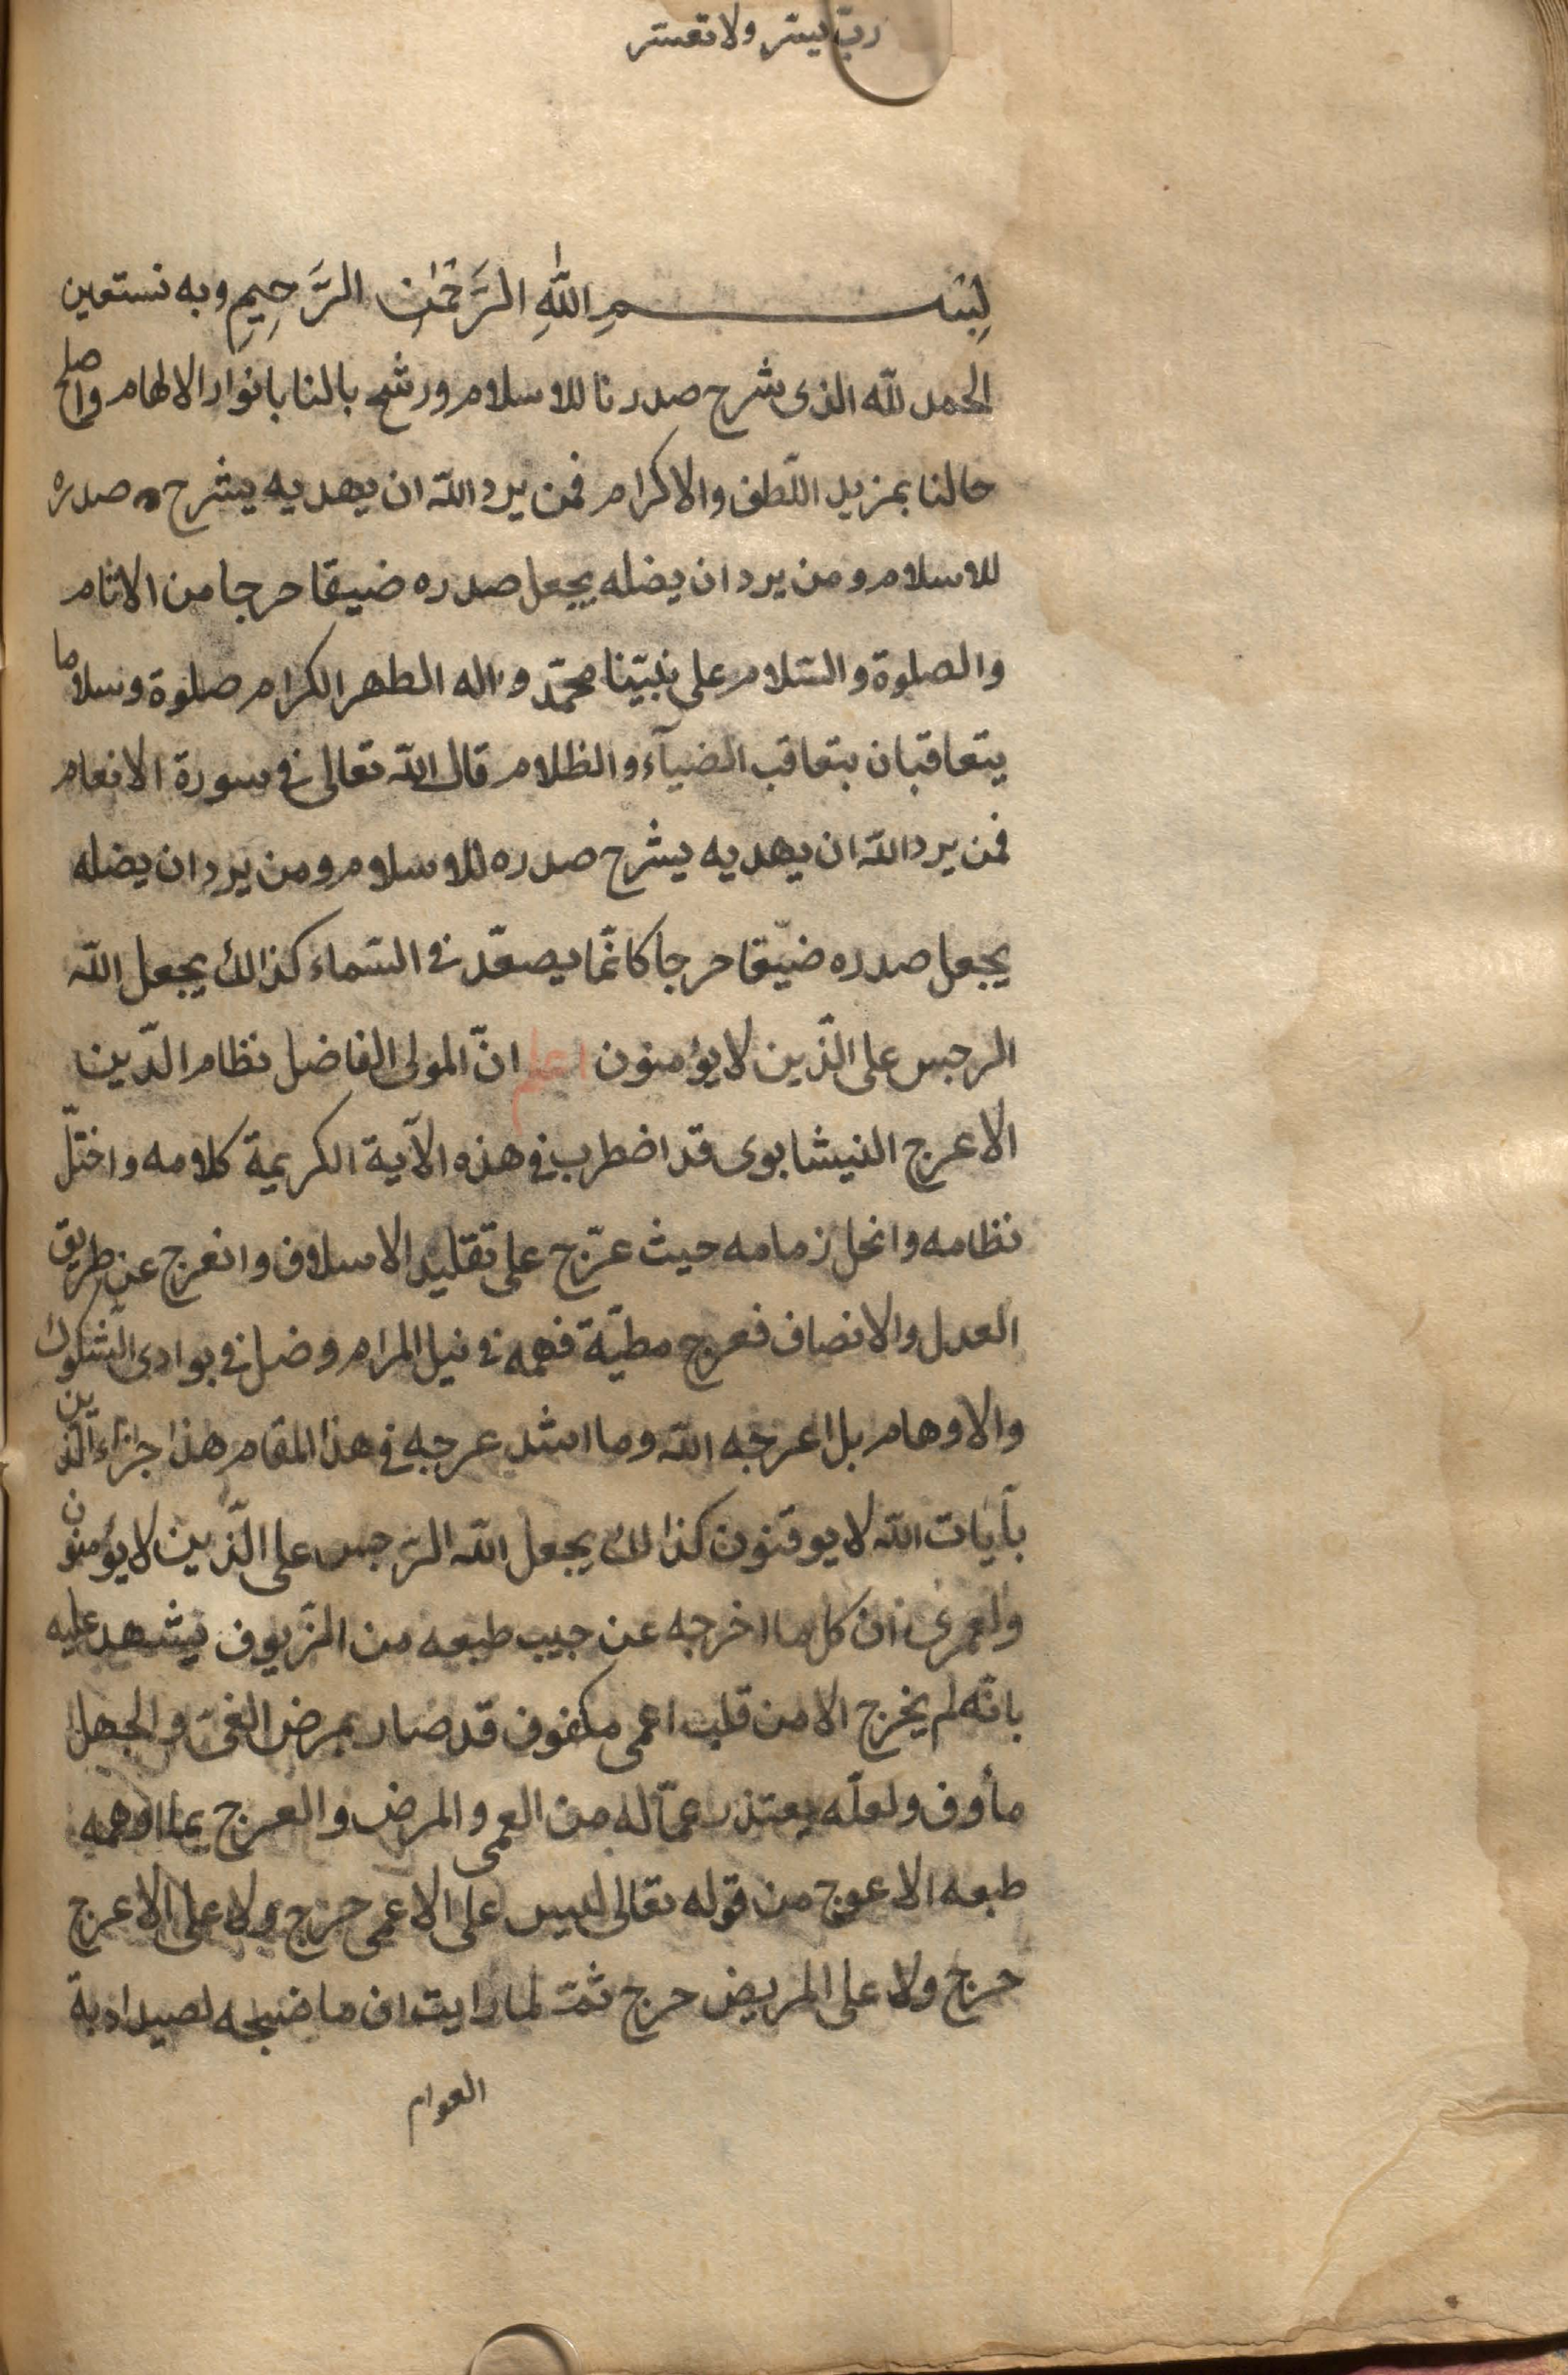 ربّ يسّر ولا تعسّر
بِسْمِ اللّٰهِ الرَّحْمٰنِ الرَّحِيمِ وبه نستعين
الحمد للّه الذى شرح صدرنا للاسلام ورشح بالنا بانوار الالهام واصلح
حالنا بمزيد اللّطف والاكرام فمن يرد اللّه ان يهديه يشرح صدره
للاسلام ومن يرد ان يضله يجعل صدره ضيقا حرجا من الاثام
والصلوة والسّلام على نبيّنا محمّد واله المطهر الكرام صلوة وسلاما
يتعاقبان بتعاقب الضيآء والظلام قال اللّه تعالى فى سورة الانعام
فمن يرد اللّه ان يهديه يشرح صدره للاسلام ومن يرد ان يضله
يجعل صدره ضيّقا حرجا كانّما يصعّد فى السّماء كذالك يجعل اللّه
الرجس على الّذين لا يؤمنون اعلم انّ المولى الفاضل نظام الدّين
الاعرج النيشابوى قد اضطرب فى هذه الآية الكريمة كلامه واختلّ
نظامه وانحل زمامه حيث عرّج على تقليد الاسلاف وانعرج عن طريق
العدل والانصاف فعرج مطيّة فهمه فى نيل المرام وضل فى بوادى الشّكوك
والاوهام بل اعرجه اللّه وما اشد عرجه فى هذا المقام هذا جزاء الّذين
بآيات اللّه لا يوقنون كذالك يجعل اللّه الرّجس على الّذين لا يؤمنون
ولعمرى ان كل ما اخرجه عن جيب طبعه من الزّيوف يشهد عليه
بانّه لم يخرج الا من قلب اعمى مكفوف قد صار بمرض الغىّ والجهل
مأوف ولعلّه يعتذر عمّا له من العمى والمرض والعرج بما اوهمه
طبعه الاعوج من قوله تعالى ليس على الاعمى حرج ولا على الاعرج
حرج ولا على المريض حرج ثمّ لما رايت ان ما لصيد
العوام